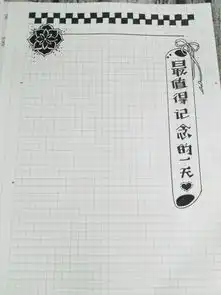 最值得记念的一天